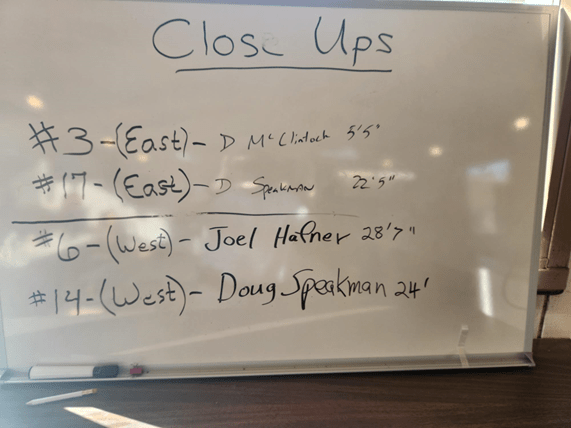 Close Ups
#3-(East)- D McClintock 5'5"
#17-(East)- D Speakman 22'5"
#6-(West)- Joel Hafner 28'7"
#14-(West)- Doug Speakman 24'